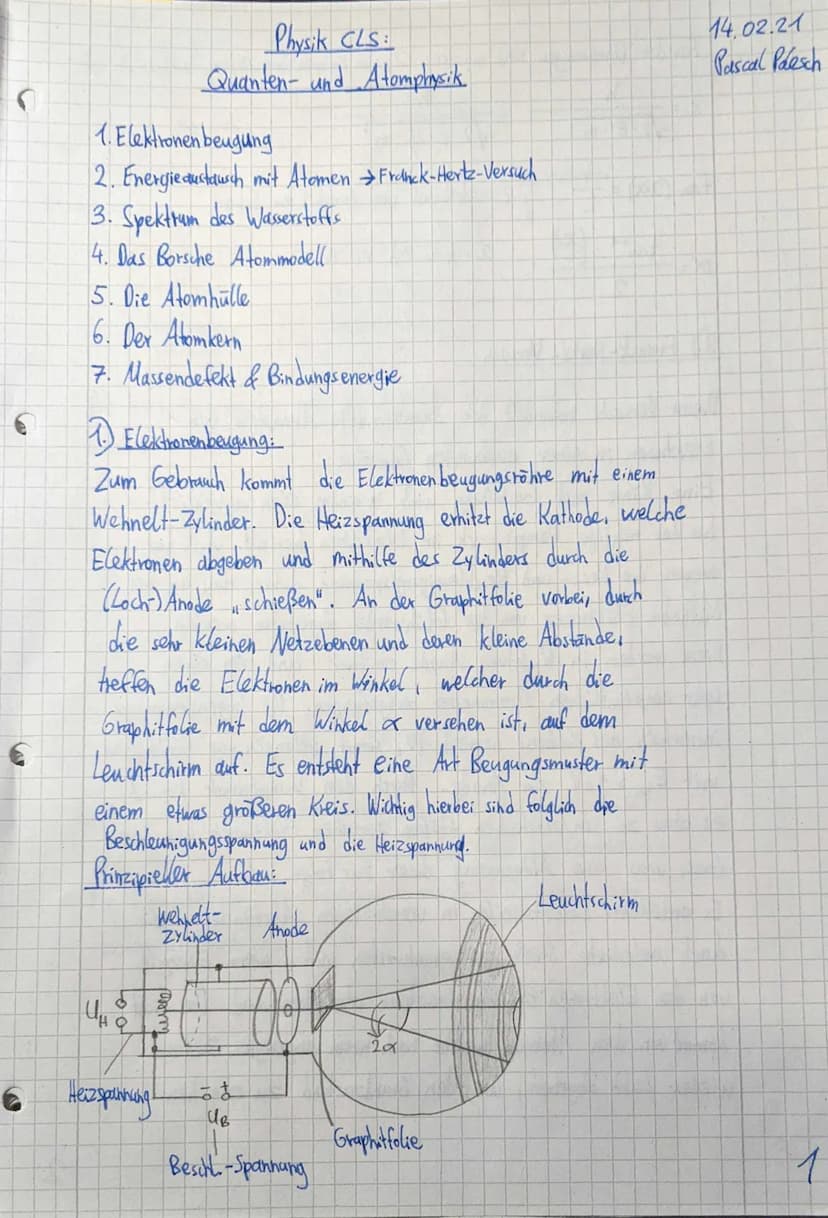 Physik CLS:
14.02.21
Quanten- und Atomphysik
Pascal
1. Elektronenbeugung
2. Energieaustausch mit Atomen → Franck-Hertz-Versuch
3. Spektrum des Wasserstoffs
4. Das Borsche Atommodell
5. Die Atomhülle
6. Der Atomkern
7. Massendefekt & Bindungsenergie
1.) Elektronenbeugung:
Zum Gebrauch kommt die Elektronenbeugungsröhre mit einem
Wehnelt-Zylinder. Die Heizspannung erhitzt die Kathode, welche
Elektronen abgeben und mithilfe des Zylinders durch die
(Loch-)Anode „schießen“. An der Graphitfolie vorbei, durch
die sehr kleinen Netzebenen und deren kleine Abstände,
treffen die Elektronen im Winkel, welcher durch die
Graphitfolie mit dem Winkel α versehen ist, auf dem
Leuchtschirm auf. Es entsteht eine Art Beugungsmuster mit
einem etwas größeren Kreis. Wichtig hierbei sind folglich die
Beschleunigungsspannung und die Heizspannung.
Prinzipieller Aufbau:
Leuchtschirm
Wehnelt-
Zylinder
Anode
U_H
2α
Heizspannung
- +
U_B
Graphitfolie
Beschl.-Spannung
1